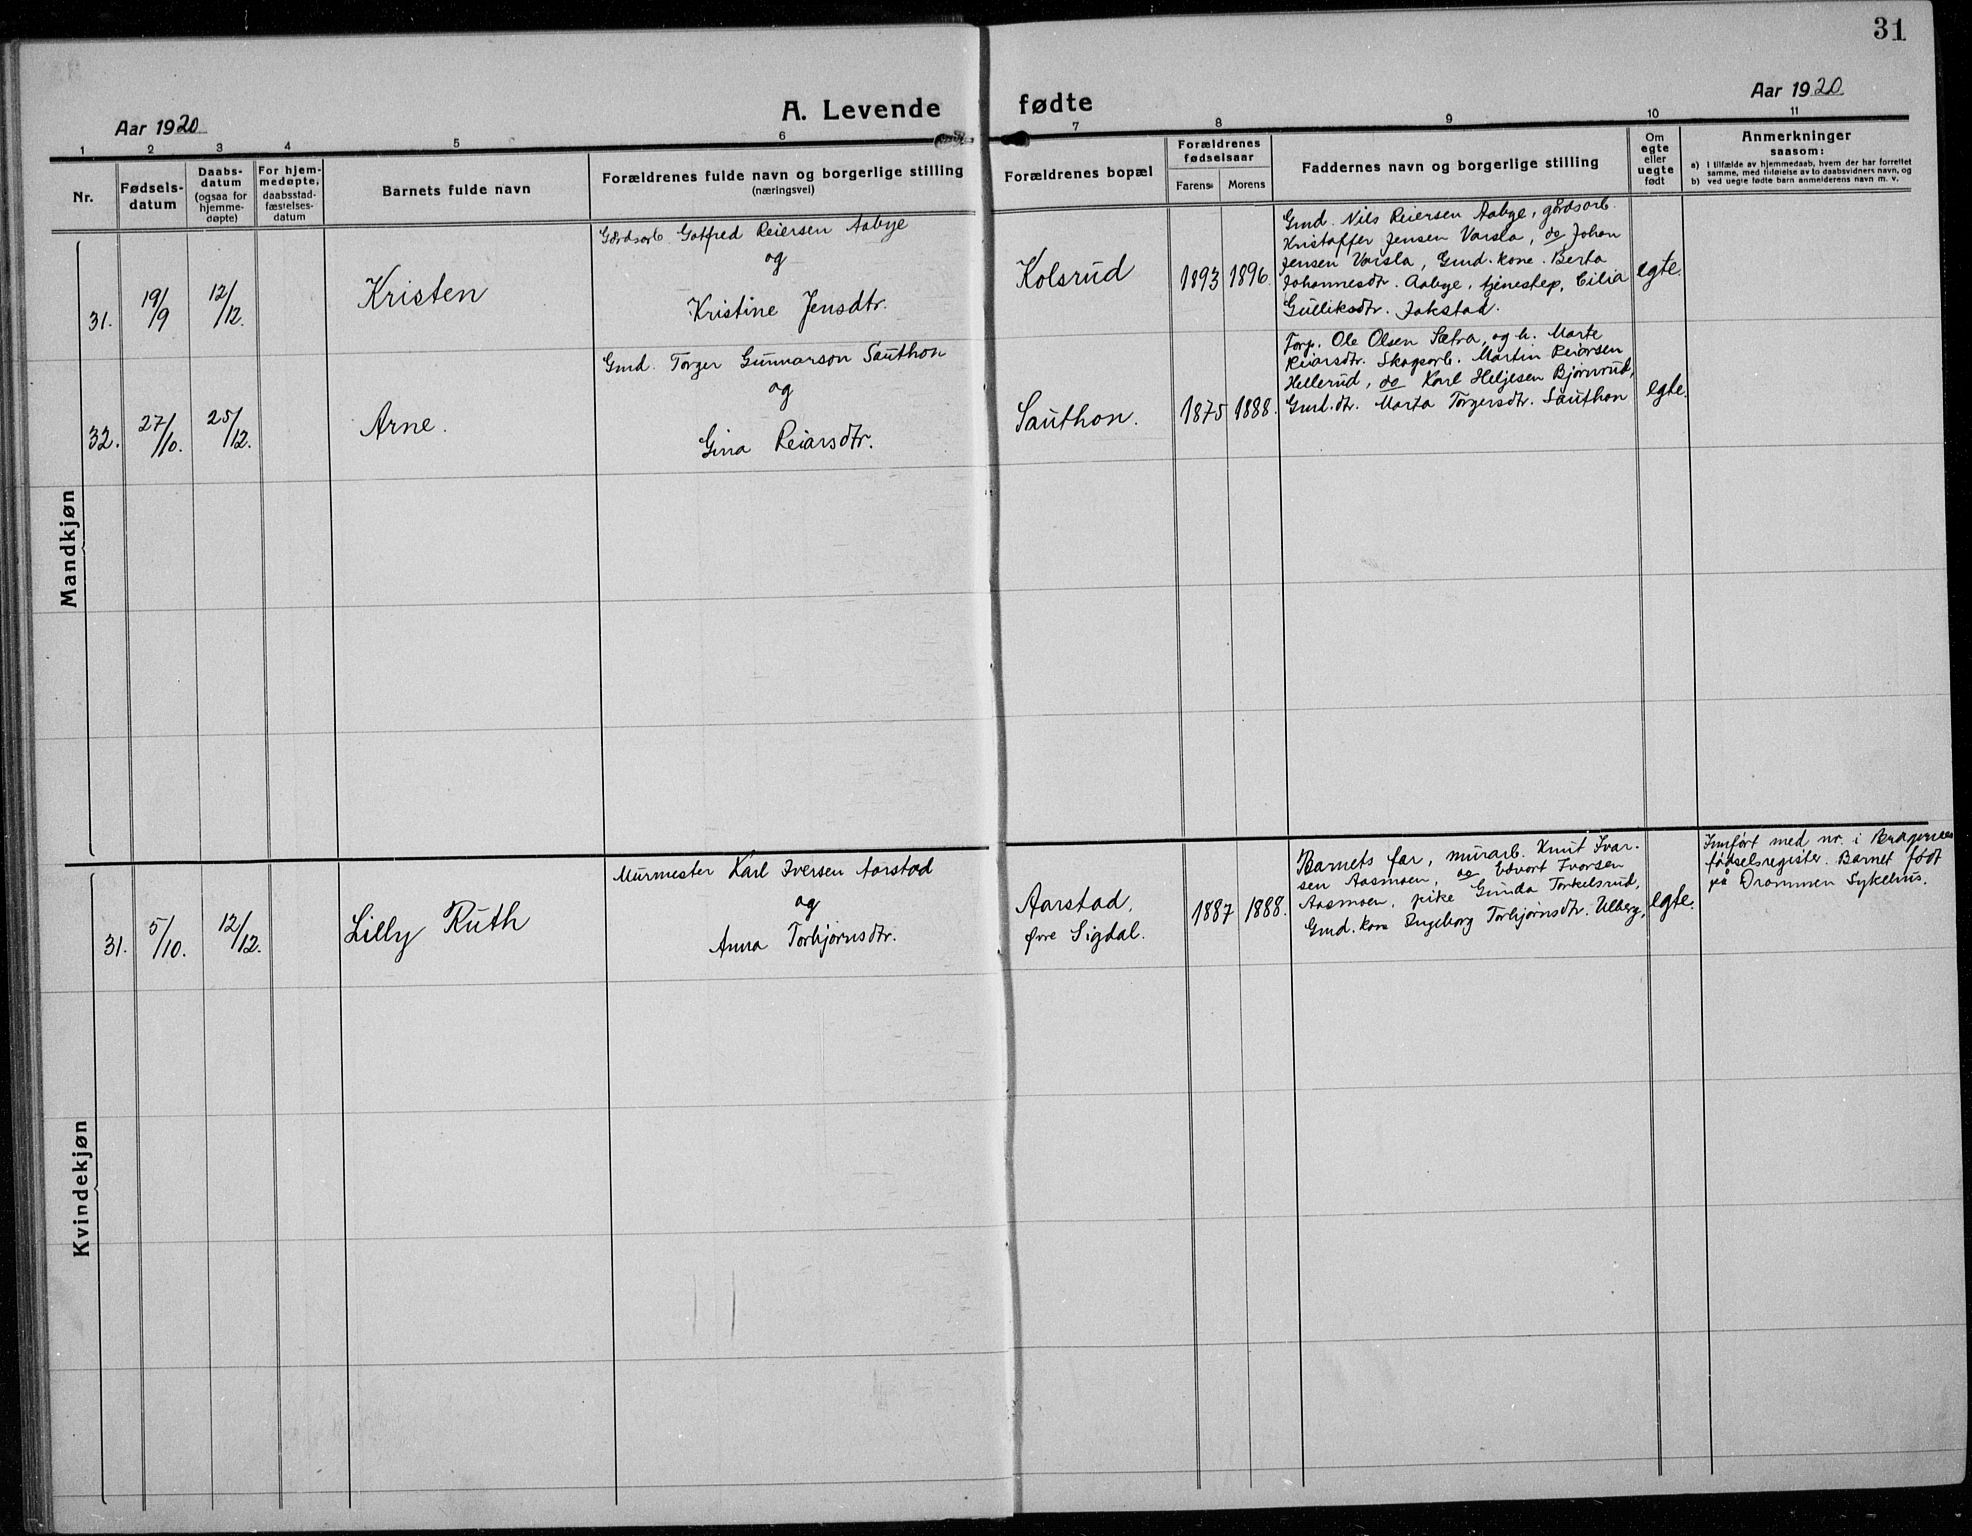 31
Aar 1920
A. Levende fødte
Aar 1920
1 2 3 4 5 6 7 8 9 10 11
Nr.
Fødsels-
datum
Daabs-
datum
(ogsaa for
hjemme-
døpte)
For hjem-
medøpte,
daabsstad-
fæstelses-
datum
Barnets fulde navn
Forældrenes fulde navn og borgerlige stilling
(næringsvei)
Forældrenes bopæl
Forældrenes
fødselsaar
Farens Morens
Faddernes navn og borgerlige stilling
Om
egte
eller
uegte
født
Anmerkninger
saasom:
a) I tilfælde av hjemmedaab, hvem der har forrettet
samme, med tilføielse av to daabsvidners navn, og
b) ved uegte fødte barn anmelderens navn m. v.
Mandkjøn
31.
19/9
12/12.
Kristen
Gårdsarb. Gotfred Reiersen Aabye
og
Kristine Jensdtr.
Kolsrud
1893
1896.
Gmd. Nils Reiersen Aabye, gårdsarb.
Kristoffer Jensen Varsla, do Johan
Jensen Varsla, Gmd. kone. Berta
Johannesdtr. Aabye, tjenestep. Cilia
Gulliksdtr. Jokstad.
egte.
32.
27/10.
25/12.
Arne.
Gmd. Torger Gunnarson Sauthon
og
Gina Reiarsdtr.
Sauthon.
1875
1888.
Forp. Ole Olsen Sætra, og h. Marte
Reiarsdtr. Skogsarb. Martin Reiersen
Hellerud, do Karl Heljesen Bjørnrud,
Gmd. dt. Marta Torgersdtr. Sauthon
egte.
Kvindekjøn
31.
5/10.
12/12.
Lilly Ruth
Murmester Karl Iversen Aarstad
og
Anna Torbjørnsdtr.
Aarstad,
øvre Sigdal.
1887
1888.
Barnets far, murarb. Knut Ivar-
sen Aasmoen, do Edvart Ivorsen
Aasmoen, pike Gunda Torkelsrud,
Gmd. kone Ingeborg Torbjørnsdtr. Ulberg,
egte.
Innført med nr. i Bragernes
fødselsregister. Barnet født
på Drammen Sykehus.